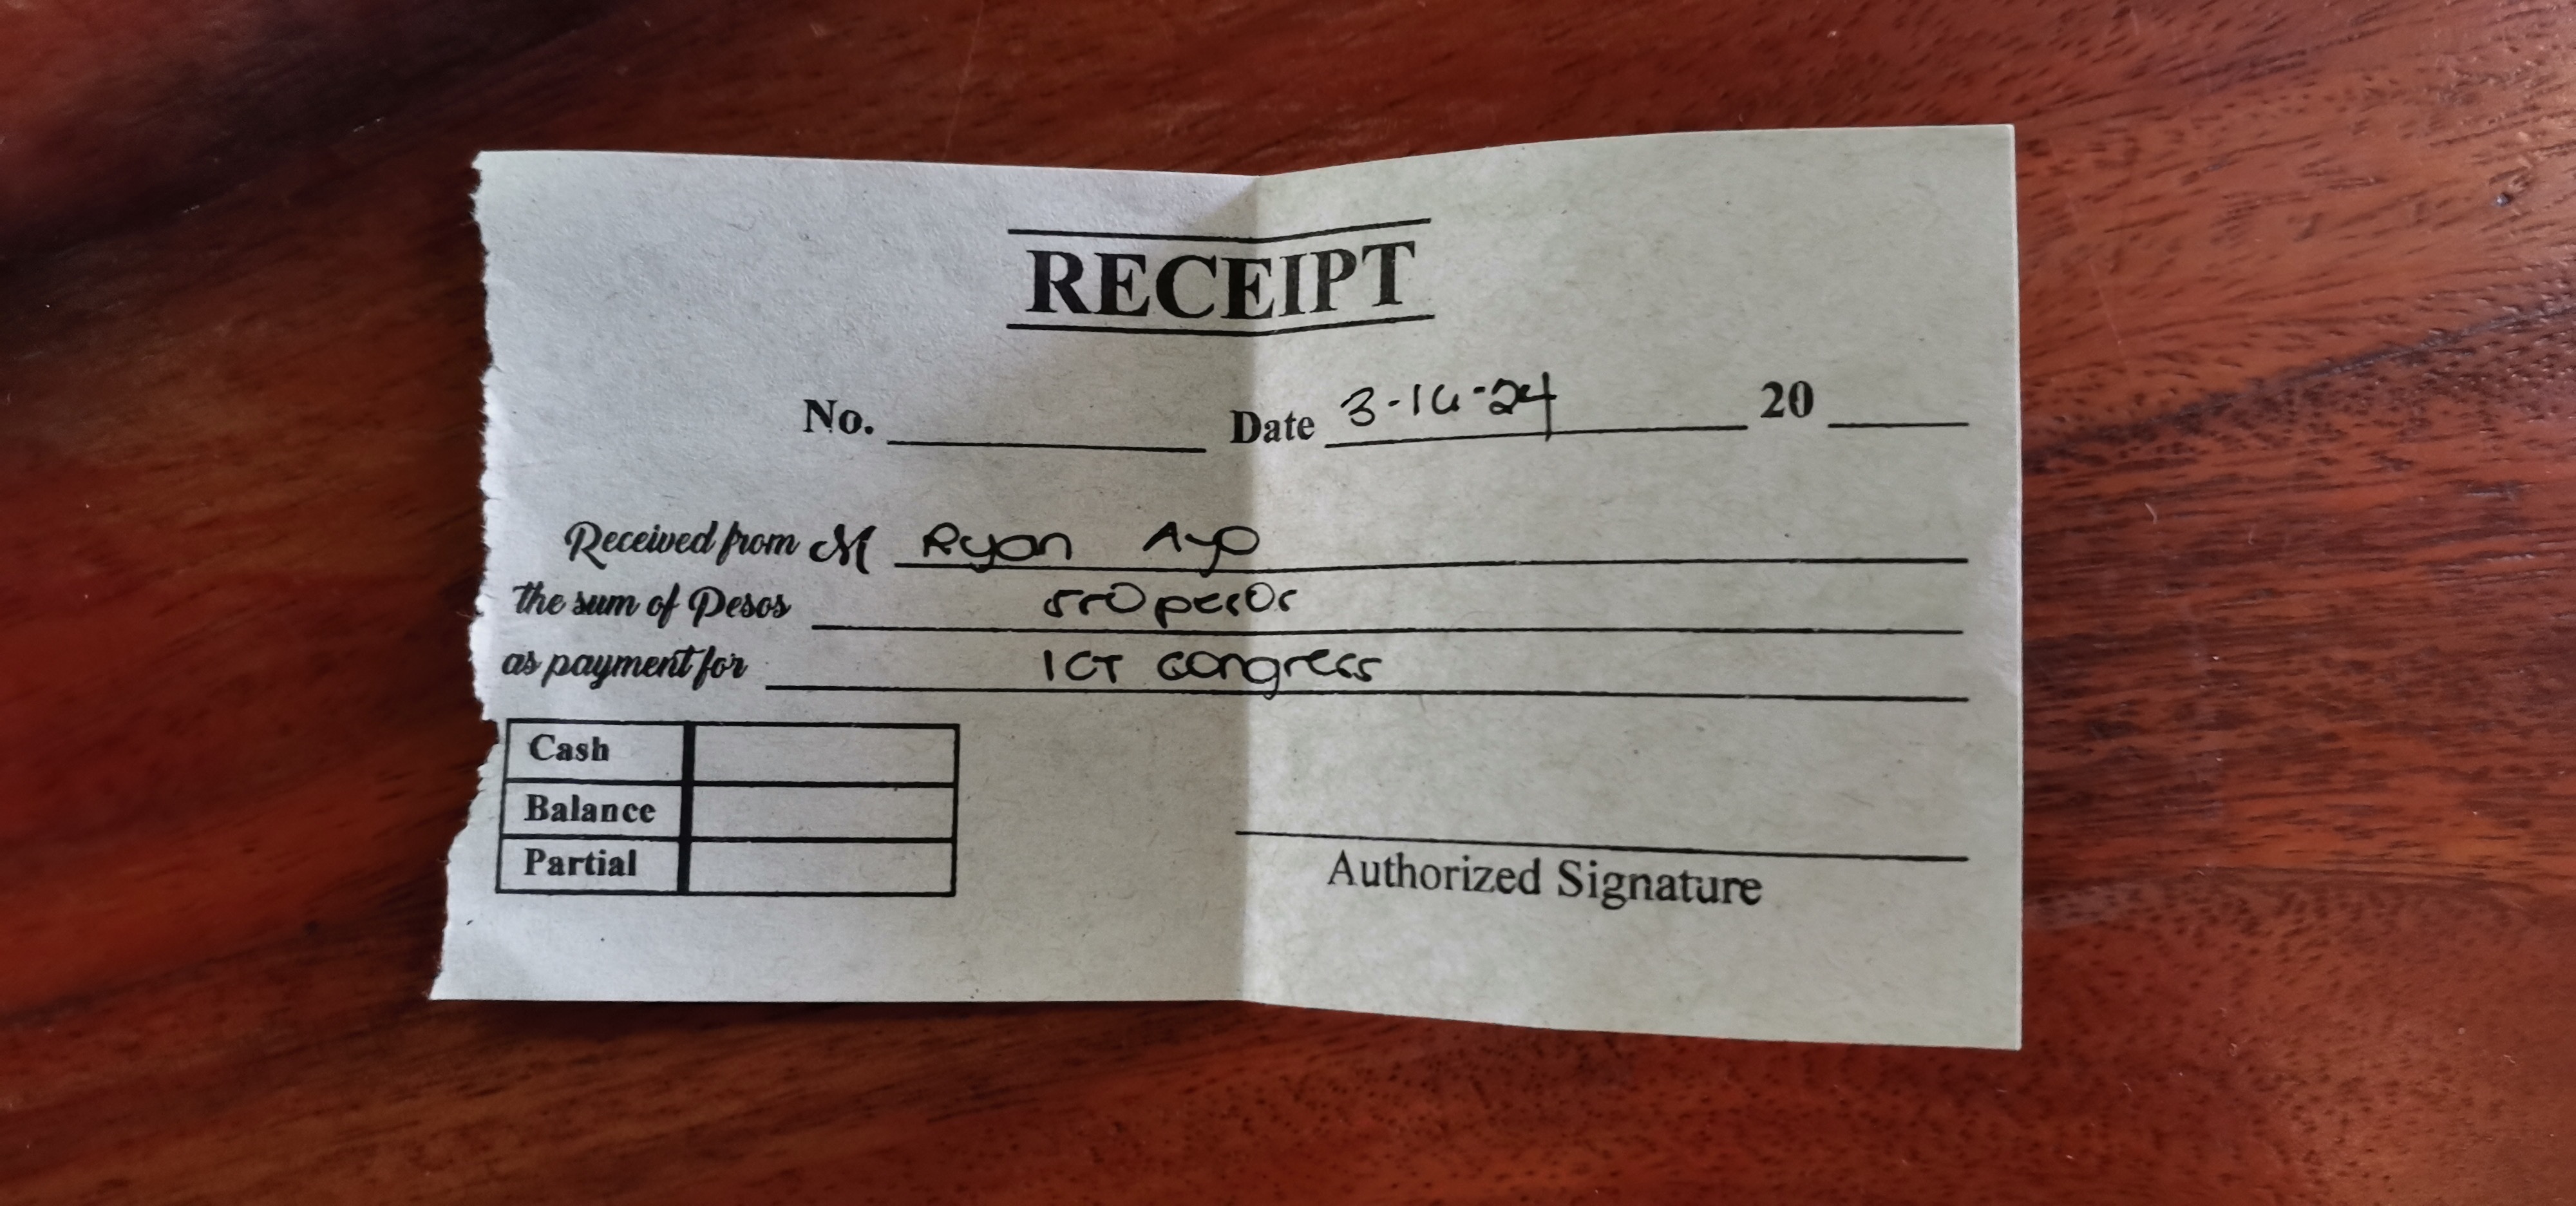 RECEIPT
No. ____ Date 3-14-24 20 ____
Received from M Ryan Ayo
the sum of Pesos 550 pesos
as payment for ICT Congress
Cash
Balance
Partial
Authorized Signature